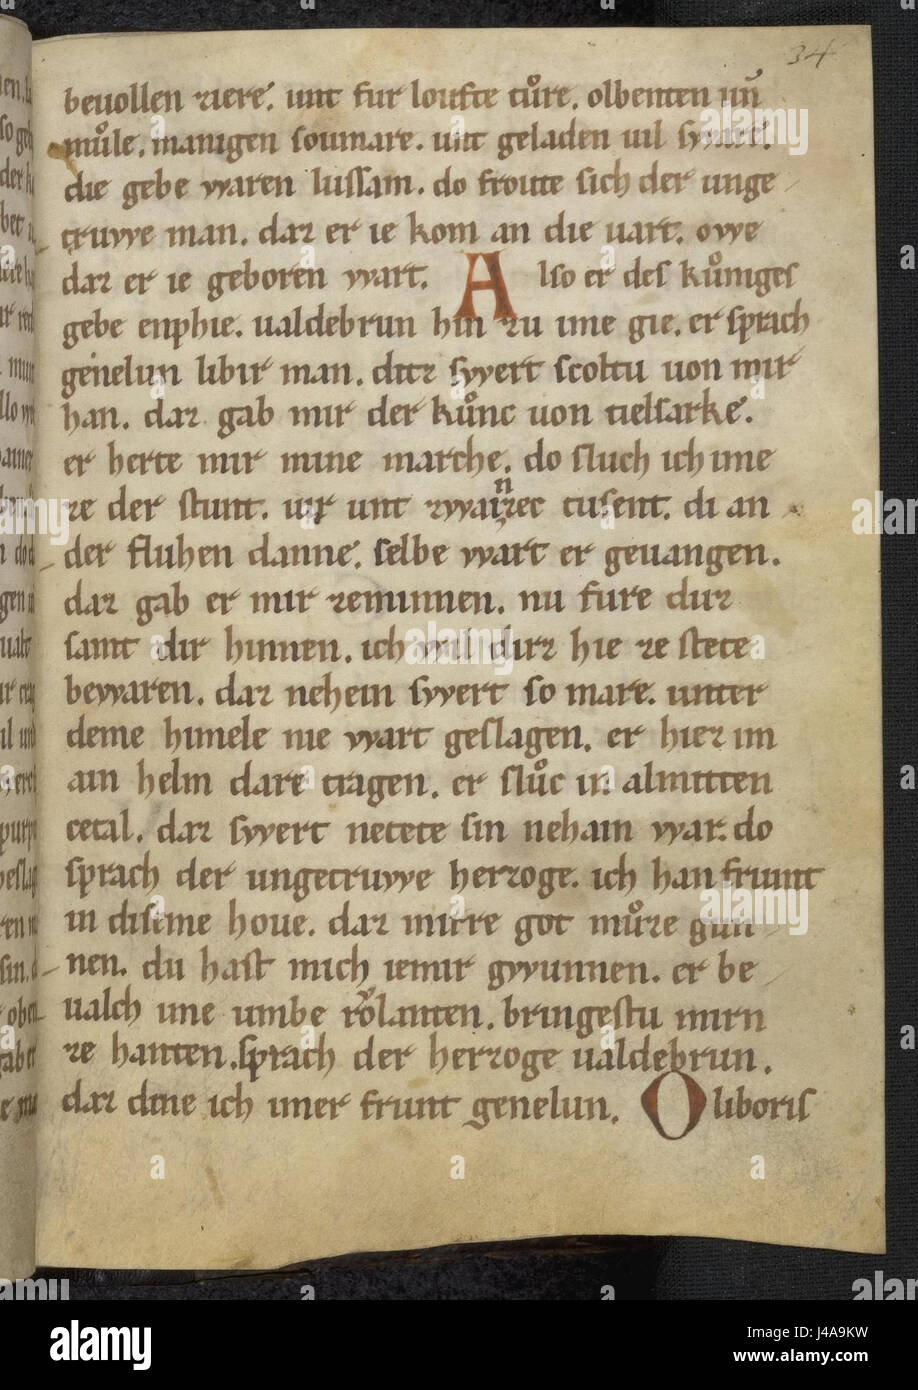 34
beuollen ziere. unt fur loufte tůre. olbenten uñ
můle. manigen soumare. unt geladen uil swart.
die gebe waren lussam. do froute sich der unge
truwe man. daz er ie kom an die uart. owe
daz er ie geboren wart. Also er des kůniges
gebe enphie. ualdebrun hin zu ime gie. er sprach
genelun libir man. ditz swert scoltu uon mir
han. daz gab mir der kůnc uon tielsarke.
er herte mir mine marche. do sluch ich ime
ze der stunt. uir unt zwainzec tusent. di an
der fluhen danne. selbe wart er geuangen.
daz gab er mir zeminnen. nu fure diuz
samt dir hinnen. ich wil dirz hie ze stete
bewaren. daz nehein swert so mare. unter
deme himele nie wart geslagen. er hiez im
ain helm dare tragen. er slůc in almitten
cetal. daz swert netete sin nehain war. do
sprach der ungetruwe herzoge. ich han friunt
in diseme houe. daz mirre got můze gun
nen. du hast mich iemir gwunnen. er be
ualch ime umbe rolanten. bringestu mirn
ze hanten. sprach der herzoge ualdebrun.
daz dine ich imer frunt genelun. Oliboris
alamy
Image ID: J4A9KW
www.alamy.com